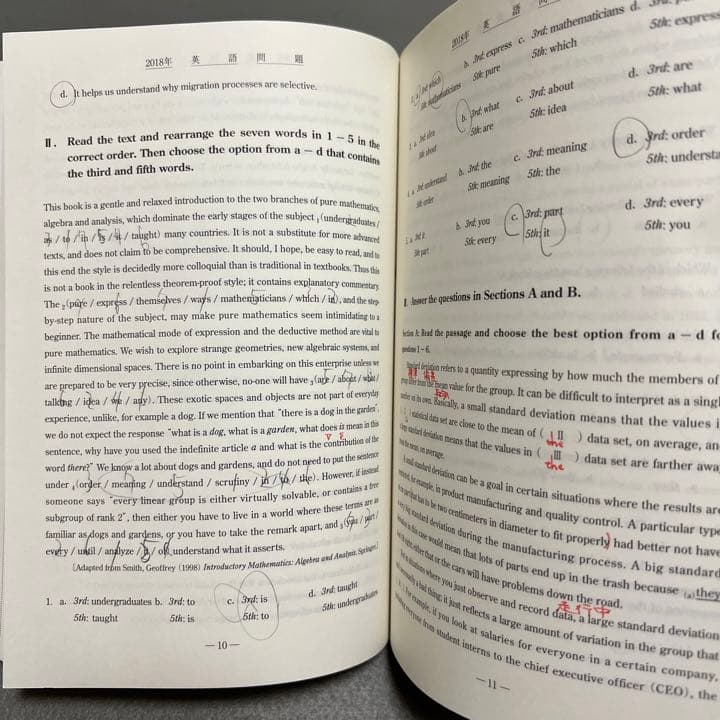 2018年 英 語 問 題
d. It helps us understand why migration processes are selective.
II. Read the text and rearrange the seven words in 1 – 5 in the
correct order. Then choose the option from a – d that contains
the third and fifth words.
This book is a gentle and relaxed introduction to the two branches of pure mathematics,
algebra and analysis, which dominate the early stages of the subject 1(undergraduates /
as / to / in / is / it / taught) many countries. It is not a substitute for more advanced
texts, and does not claim to be comprehensive. It should, I hope, be easy to read, and to
this end the style is decidedly more colloquial than is traditional in textbooks. Thus this
is not a book in the relentless theorem-proof style; it contains explanatory commentary.
The 2(pure / express / themselves / ways / mathematicians / which / in), and the step-
by-step nature of the subject, may make pure mathematics seem intimidating to a
beginner. The mathematical mode of expression and the deductive method are vital to
pure mathematics. We wish to explore strange geometries, new algebraic systems, and
infinite dimensional spaces. There is no point in embarking on this enterprise unless we
are prepared to be very precise, since otherwise, no-one will have 3(are / about / what /
talking / idea / we / any). These exotic spaces and objects are not part of everyday
experience, unlike, for example a dog. If we mention that "there is a dog in the garden",
we do not expect the response "what is a dog, what is a garden, what does is mean in this
sentence, why have you used the indefinite article a and what is the contribution of the
word there?" We know a lot about dogs and gardens, and do not need to put the sentence
under 4(order / meaning / understand / scrutiny / in / to / the). However, if instead
someone says "every linear group is either virtually solvable, or contains a free
subgroup of rank 2", then either you have to live in a world where these terms are as
familiar as dogs and gardens, or you have to take the remark apart, and 5(you / part /
every / until / analyze / it / of) understand what it asserts.
[Adapted from Smith, Geoffrey (1998) Introductory Mathematics: Algebra and Analysis. Springer]
1. a. 3rd: undergraduates b. 3rd: to c. 3rd: is d. 3rd: taught
5th: taught 5th: is 5th: to 5th: undergraduates
—10—
2018年 英 語
b. 3rd: express c. 3rd: mathematicians d.
5th: pure 5th: which 5th: express
b. 3rd: what c. 3rd: about d. 3rd: are
5th: are 5th: idea 5th: what
b. 3rd: the c. 3rd: meaning d. 3rd: order
5th: meaning 5th: the 5th:
b. 3rd: you c. 3rd: part d. 3rd: every
5th: every 5th: it 5th: you
Answer the questions in Sections A and B.
Section A: Read the passage and choose the best option from a – d
questions 1–6.
deviation refers to a quantity expressing by how much the members of
mean value for the group. It can be difficult to interpret as a
on its own. Basically, a small standard deviation means that the values
statistical data set are close to the mean of ( II ) data set, on average,
the
standard deviation means that the values in ( III ) data set are farther
the
from the mean, on average.
standard deviation can be a goal in certain situations where the results
for example, in product manufacturing and quality control. A particular
that has to be two centimeters in diameter to fit properly had better not
standard deviation during the manufacturing process. A big
in this case would mean that lots of parts end up in the trash because (a)they
or the cars will have problems down the road.
走行中
situations where you just observe and record data, a large standard deviation
bad thing; it just reflects a large amount of variation in the group that
For example, if you look at salaries for everyone in a certain company,
everyone from student interns to the chief executive officer (CEO), the
—11—